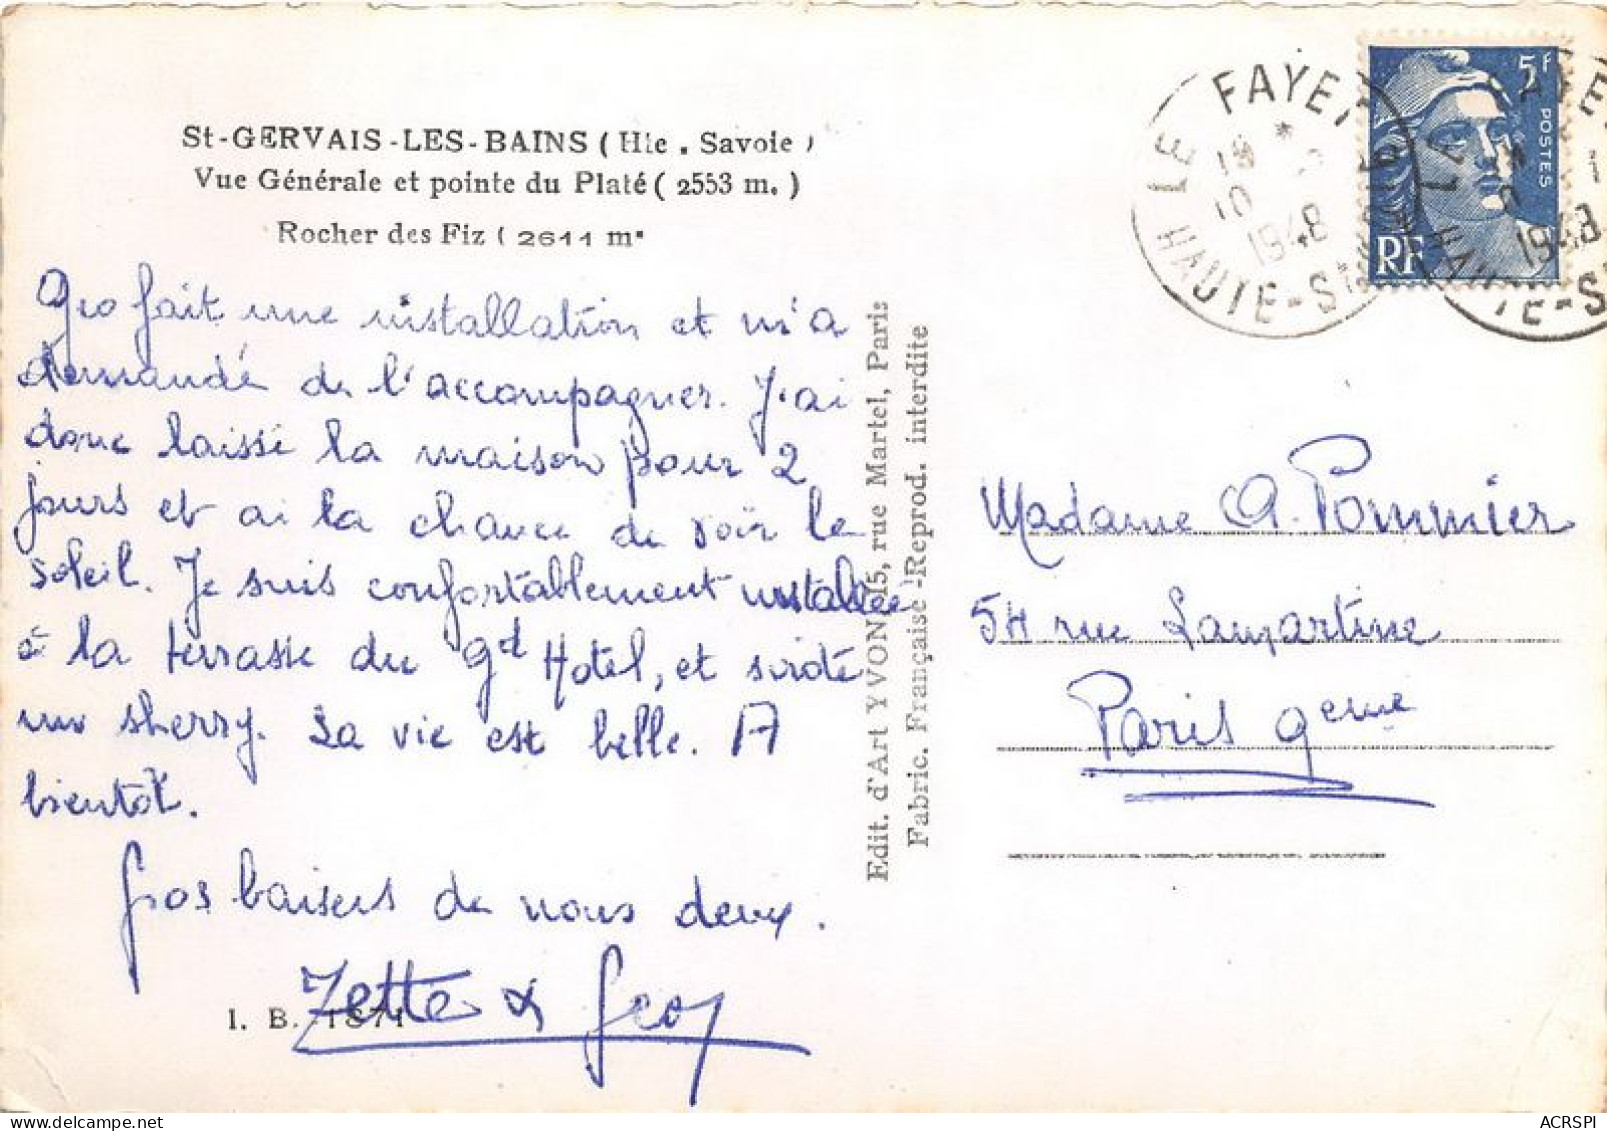 St-GERVAIS-LES-BAINS (Hte. Savoie)
Vue Générale et pointe du Platé (2553 m.)
Rocher des Fiz (2611 m.
Geo fait une installation et m'a
demandé de l'accompagner. J'ai
donc laissé la maison pour 2
jours et ai la chance de voir le
soleil. Je suis confortablement installée
à la terrasse du gd Hotel, et sirote
un sherry. La vie est belle. A
bientôt.
Gros baisers de nous deux.
Zette & Geo
I. B. 1871
Edit. d'Art YVON 15, rue Martel, Paris
Fabric. Française - Reprod. interdite
LE FAYET
10
1948
HAUTE-S
5f
POSTES
RF
1948
Madame A. Pommier
54 rue Lamartine
Paris 9eme
ACRSPI